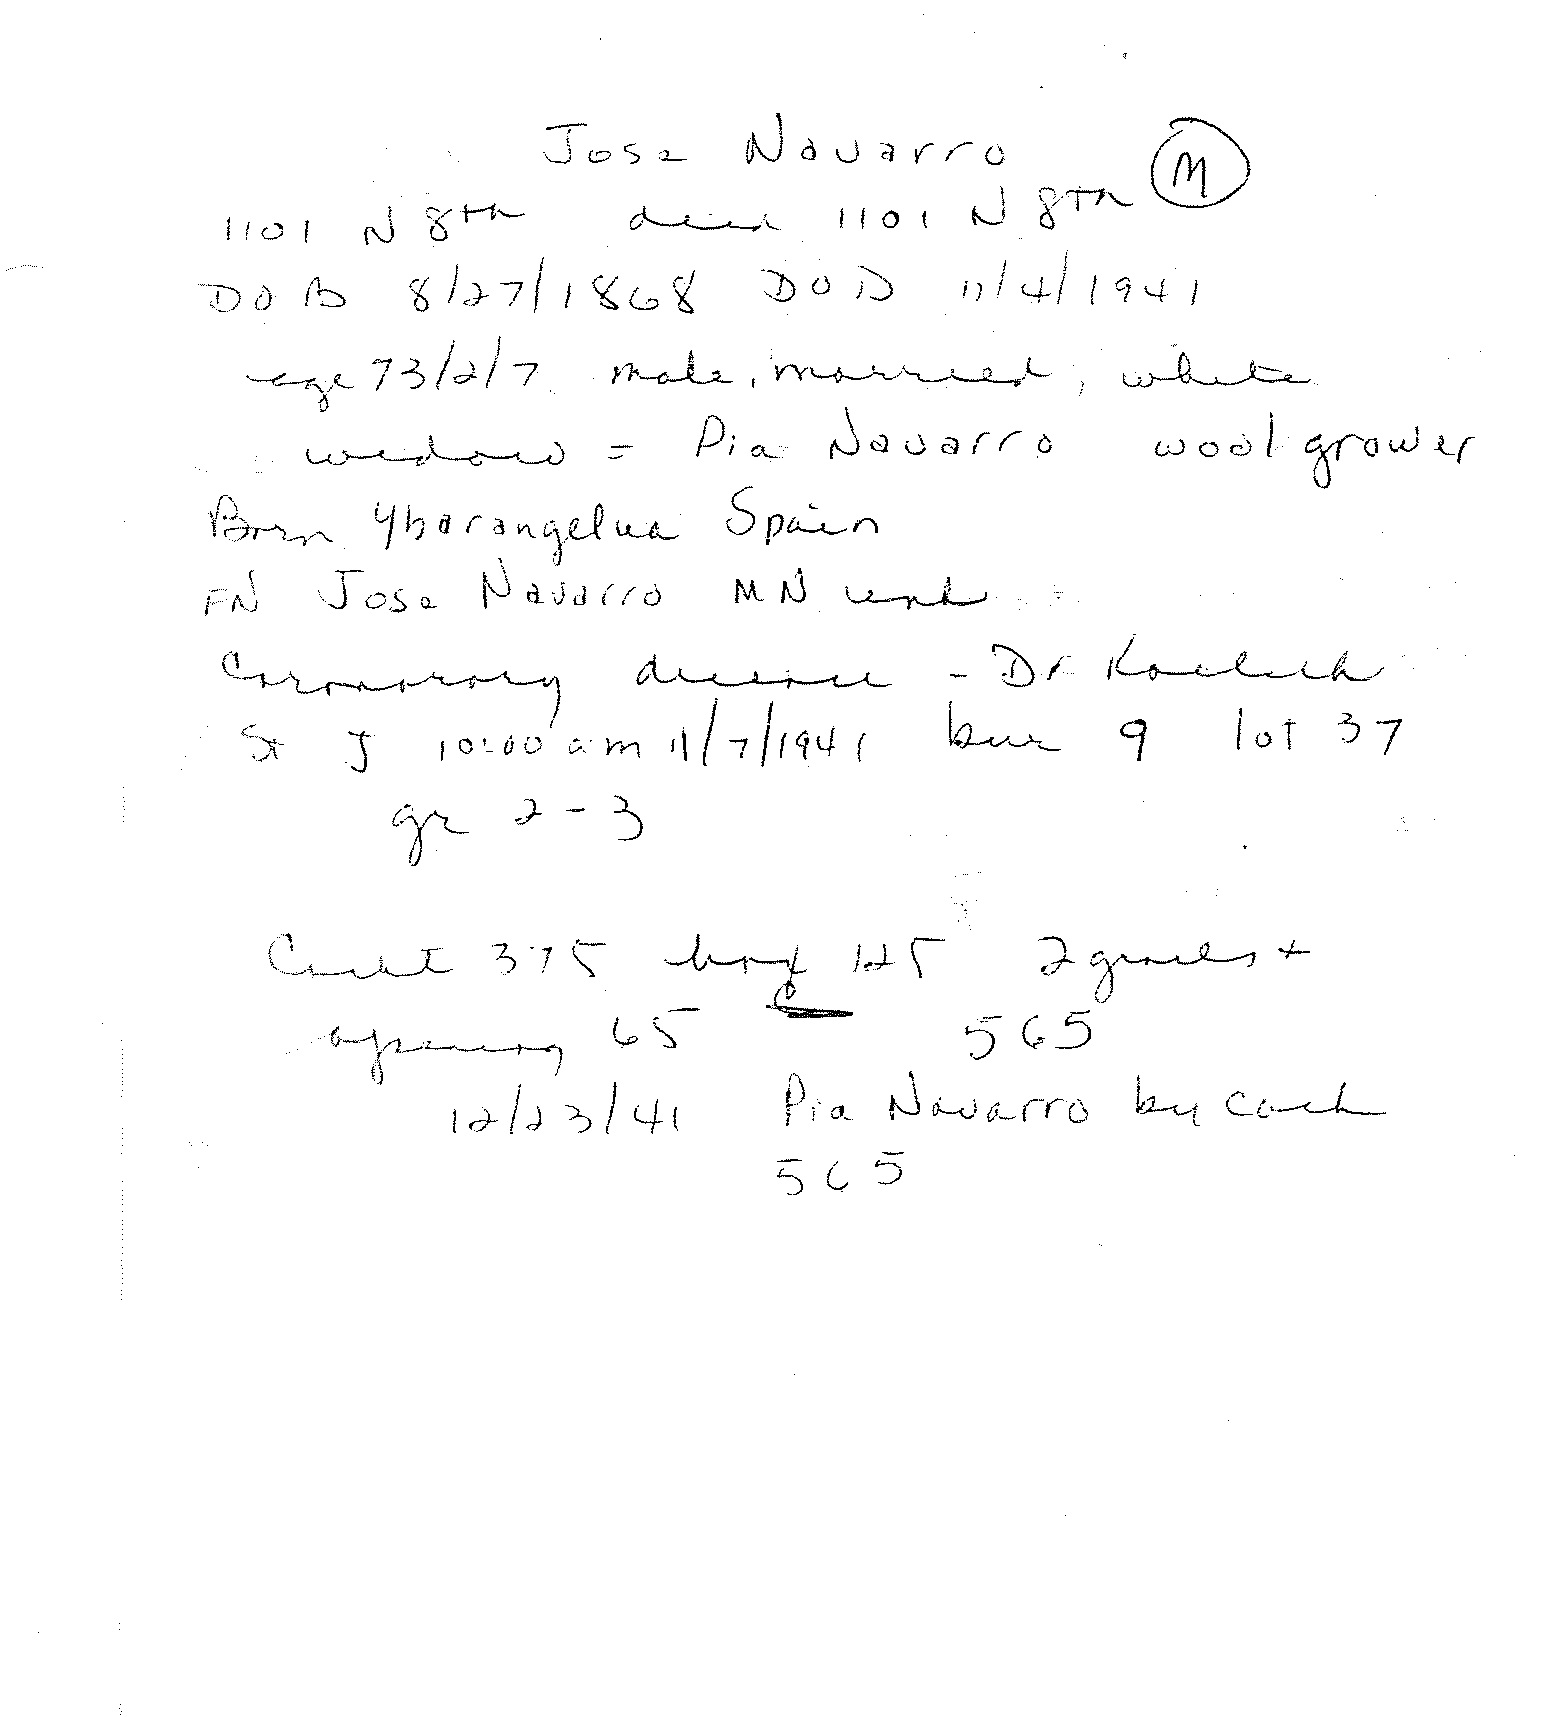 Jose Navarro M
1101 N 8th died 1101 N 8th
DOB 8/27/1868 DOD 11/4/1941
age 73/2/7 male, married, white
widow = Pia Navarro wool grower
Born Ybarangelua Spain
FN Jose Navarro MN unk
Coronorary disease - Dr
St J 10:00 am 11/7/1941 bur 9 lot 37
gr 2-3
Casket 375 box 125 2 graves +
opening 65 565
12/23/41 Pia Navarro by Cash
565